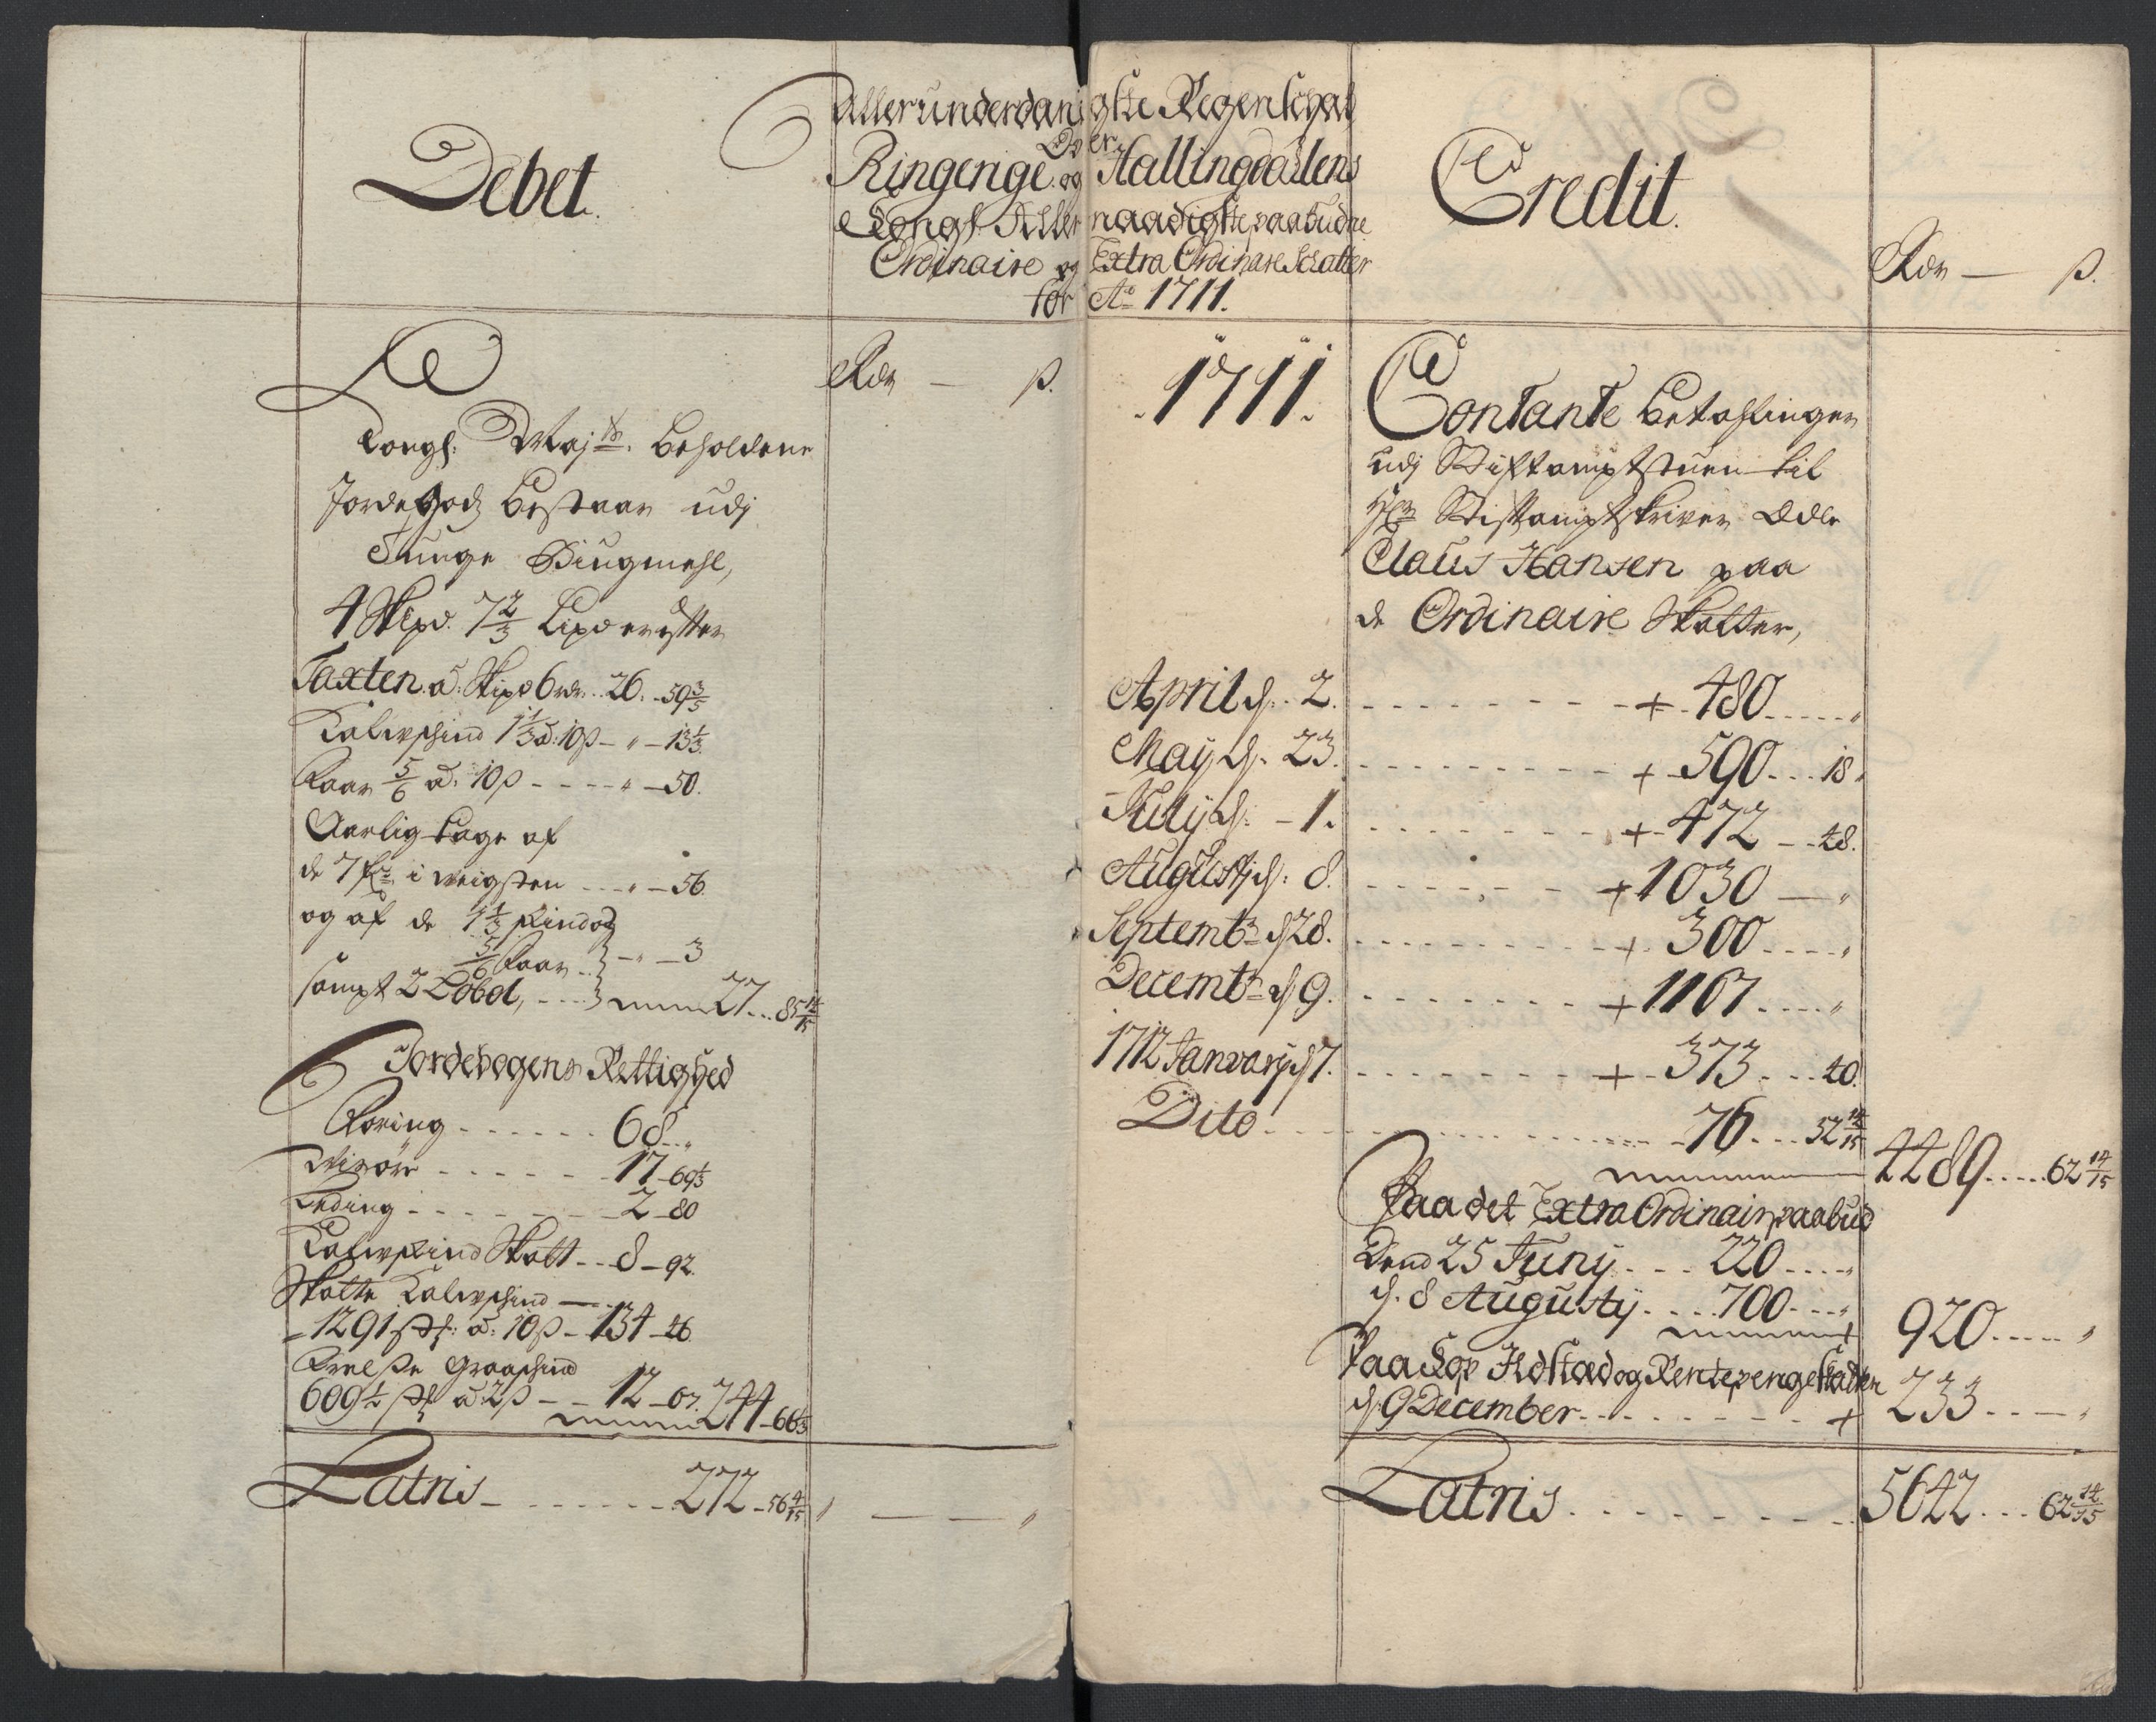 Debet.
Allerunderdanigste Regenschab
Over
Ringerige og Hallingdalens
Kongl. Allernaadigste paabudne
Ordinaire og Extra Ordinare Schatter
for Ao 1711.
Rdr — ß.
Kongl. Mayts. Beholdene
Jordegodz bestaar udj
Tunge Biugmehl,
4 Skipd. 7 2/3 Lispd er efter
Taxten à Skipd 6 rdr. 26. - 59 3/5
Kalvschind 1 1/3 à: 10 ß - " - 13 1/3
Faar 5/6 à: 10 ß - - - - " - 50.
Aarlig tage af
de 7 i - - - " - 56
og af de 1 1/3 skind og
5/6 faar - - " - 3
sampt 2 Løbol, - - - 27 . . . 85 14/15
Jordebogens Rettighed
Foring - - - - - - 68 . . "
Wisøre - - - - - - 17 - 69 1/3
Leding - - - - - - 2 - 80
Kalvskind Skatt - - 8 - 92.
Skatte Kalvschind —
- 1291 st: à: 10 ß - 134 - 46
Graaschind
609 1/2 st à 2 ß - - 12 - 67. 244 - 66 1/3
Latris - . . . . . . 272 - 56 4/15 " — — "
Credit.
Rdr — ß.
1711.
Contante Betahlinger
udj Stiftamptstuen til
Hr. Stiftamptskriver Edle
Claus Hansen paa
de Ordinaire Skatter,
April d. 2. - - - - - + 480 . . . . "
May d. 23. - - - - - + 590 . . . 18 "
July d: - 1. - - - - - + 472 - - 48.
Augustj d: 8. - - - - - + 1030 — "
Septembr d 28. - - - - - + 300 . . . . "
Decembr d 9. - - - - - + 1167 . . . . "
1712 Janvarij d 7. - - - - - + 373 . . . 40.
Dito - - - - - 76 . . . 52 14/15
4489 . . . . . 62 14/15
Paa det Extra Ordinair paabud
Dend 25 Junij . . . 220 . . . . "
d. 8 Augustij . . . . 700 . . . "
+ 920 . . . . . "
Paa Kop Ildsted og Rentepenge skatten
d. 9 December . . . . . . . + 233 . . — "
Latris . . . . . . . . 5642 . . . 62 14/15